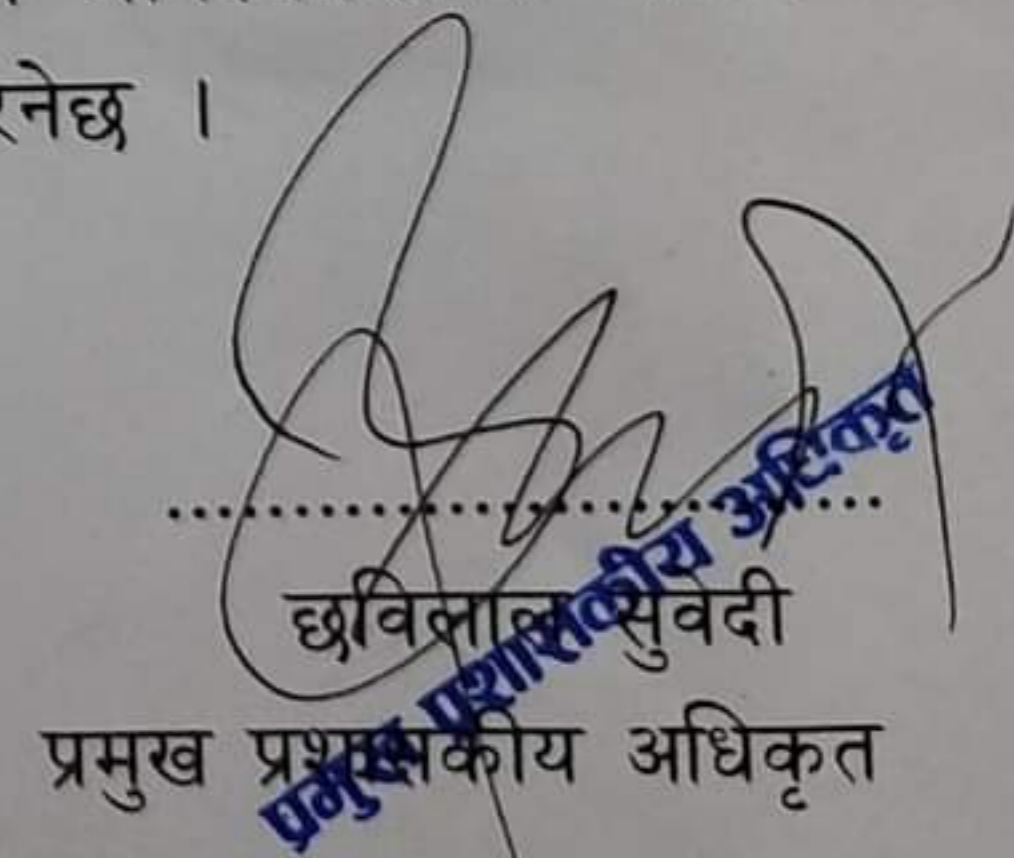 रनेछ ।
छविलाल सुवेदी
प्रमुख प्रशासकीय अधिकृत
प्रमुख प्रशासकीय अधिकृत